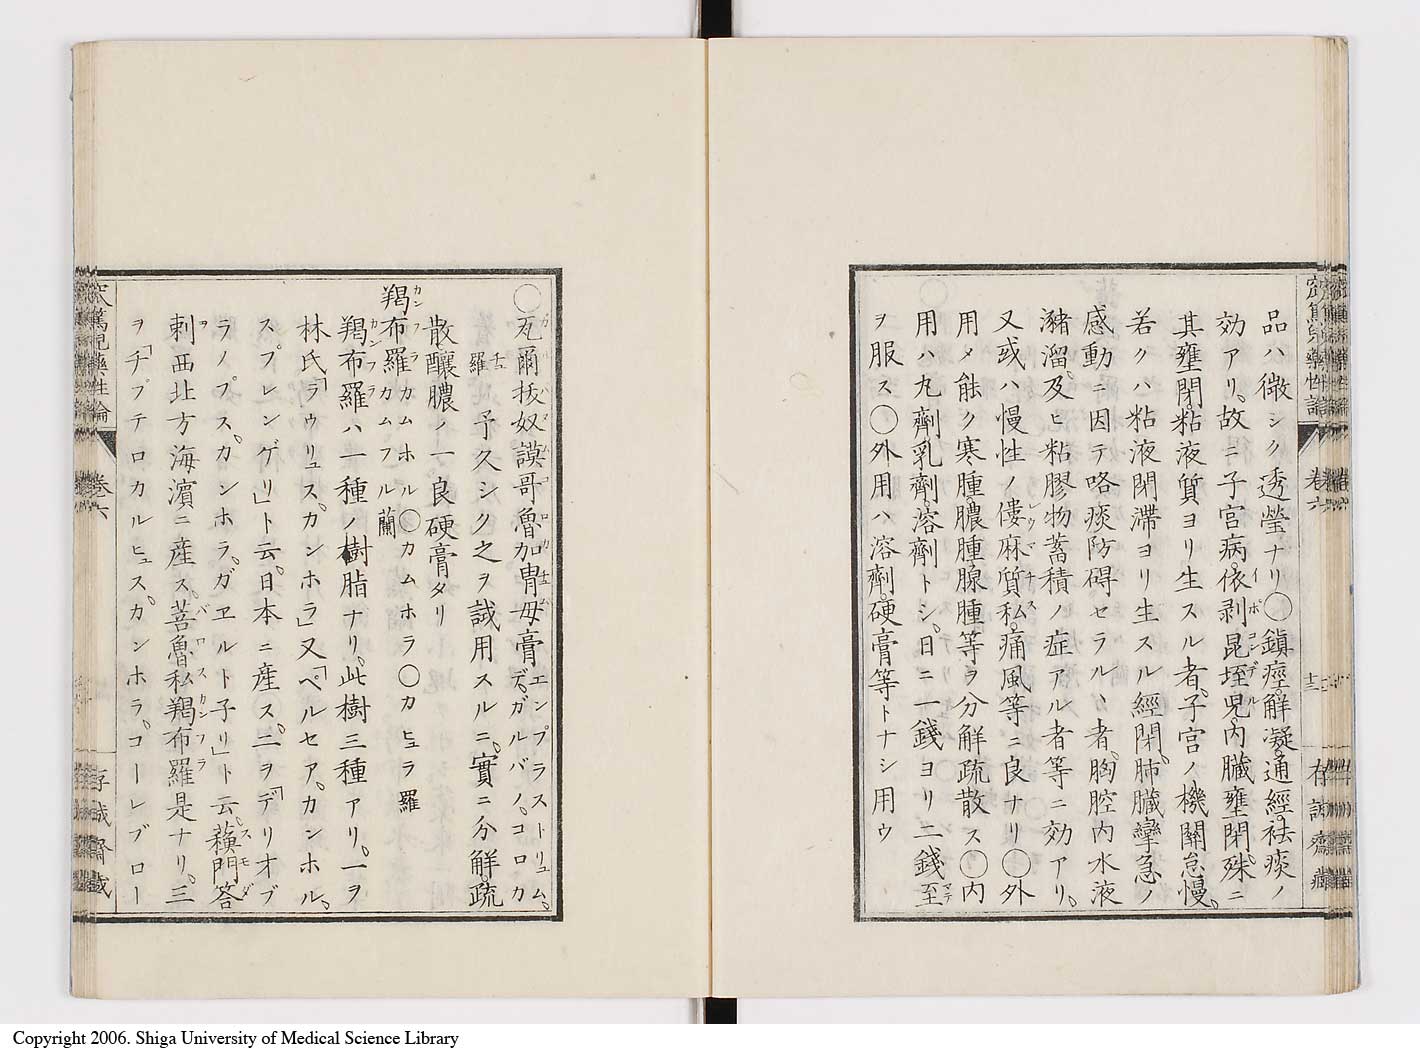 品ハ微シク透瑩ナリ○鎮痙。解凝。通經。袪痰ノ
効アリ。故ニ子宮病。依剥昆垤児。内臓壅閉。殊ニ
其壅閉。粘液質ヨリ生スル者。子宮ノ機關怠慢。
若クハ粘液閉滞ヨリ生スル經閉。肺臓攣急ノ
感動ニ因テ咯痰防碍セラルヽ者。胸腔内水液
瀦溜。及ヒ粘膠物蓄積ノ症アル者等ニ効アリ。
又或ハ慢性ノ僂麻質私。痛風等ニ良ナリ○外
用メ能ク寒腫。膿腫。腺腫等ヲ分解疏散ス○内
用ハ丸劑乳劑。溶劑トシ。日ニ一錢ヨリ二錢至
ヲ服ス○外用ハ溶劑。硬膏等トナシ用ウ
○瓦爾抜奴謨哥魯加冑母膏 エンプラストリュム。デ。ガルバノ。コロカ
羅 予久シク之ヲ試用スルニ。實ニ分解。疏
散醸膿ノ一良硬膏タリ
羯布羅 カムホル○カムホラ○カヒュラ羅 カムフル蘭
羯布羅ハ一種ノ樹脂ナリ。此樹三種アリ。一ヲ
林氏「ラウリュス。カンホラ」又「ペルセア。カンホル。
ス。プレンゲリ」ト云。日本ニ産ス。二ヲ「デリオブ
ラノプス。カンホラ。ガヱルト子リ」ト云。蘓門答
剌西北方海濱ニ産ス。菩魯私羯布羅是ナリ。三
ヲ「チプテロカルヒュス。カンホラ。コーレブロー
卷六
十二
存誠齋藏
卷六
存誠齋藏
Copyright 2006. Shiga University of Medical Science Library